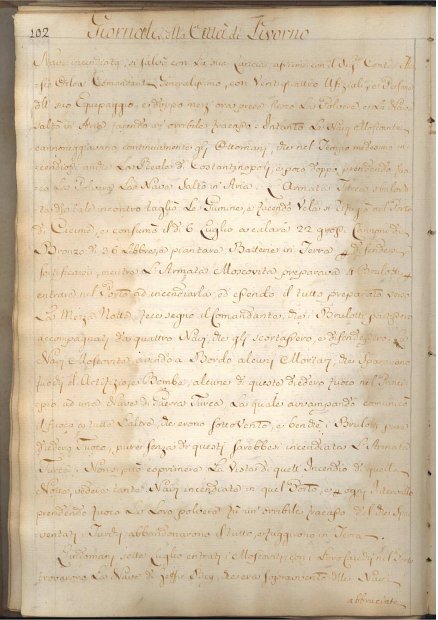 102
Giornale della Città di Livorno
Nave incendiata, si salvò con la sua Lancia
Comandante Generalissimo, con Ventiquattro Ufiziali, e
del suo Equipaggio, e doppo mezz'ora prese fuoco la Polvere, e la Nave
saltò in Aria facendo un orribile fracasso. Intanto le Navi Moscovite
cannoneggiavano continuamente gli Ottomani, che nel Tempo medesimo in-
la Reale di Costantinopoli, e poco doppo prendendo fuo-
co la Polvere la Nave saltò in Aria. L'Armata Turca
tal incontro tagliò le Gumine, e facendo Vela si nel Porto
di Cisme, e consumò il dì 6 Luglio a calare 22 grossi Cannoni di
Bronzo di 36 Libbre, a piantare Batterie in Terra
fortificarsi, mentre l'Armata Moscovita preparava i Brulotti p
entrare nel Porto ad incendiarla, ed essendo il tutto preparato verso
la Mezza Notte, fece segno il Comandante, che i Brulotti partissero
accompagnati da quattro Navi, che gli scortassero, e difendessero.
Navi Moscovite avendo a Bordo alcuni Mortari, che Sparavano
fuochi d'Artifizio, e Bombe, alcune di queste diedero fuoco nel Princi-
pio ad una Nave di Guerra Turca, la quale avvampando comunicò
il fuoco a tutte l'altre, che erono sotto Vento, e benchè i Brulotti pure
diedero fuoco, pure senza di questi sarebbesi incendiata l'Armata
Turca. Non si può esprimere la Vista di quell'Incendio di quella
Notte, vedere tante Navi incendiate in quel Porto, e ogni Intervallo
prendendo fuoco la loro polvere un orribile fracasso, del che Spa-
ventati i Turchi abbandonarono il tutto, e fuggirono in Terra.
L'indomani sette Luglio entrati i Moscoviti con i
trovarono la Nave di Jaffir Bey, che era sopravento delle Navi
abbruciate